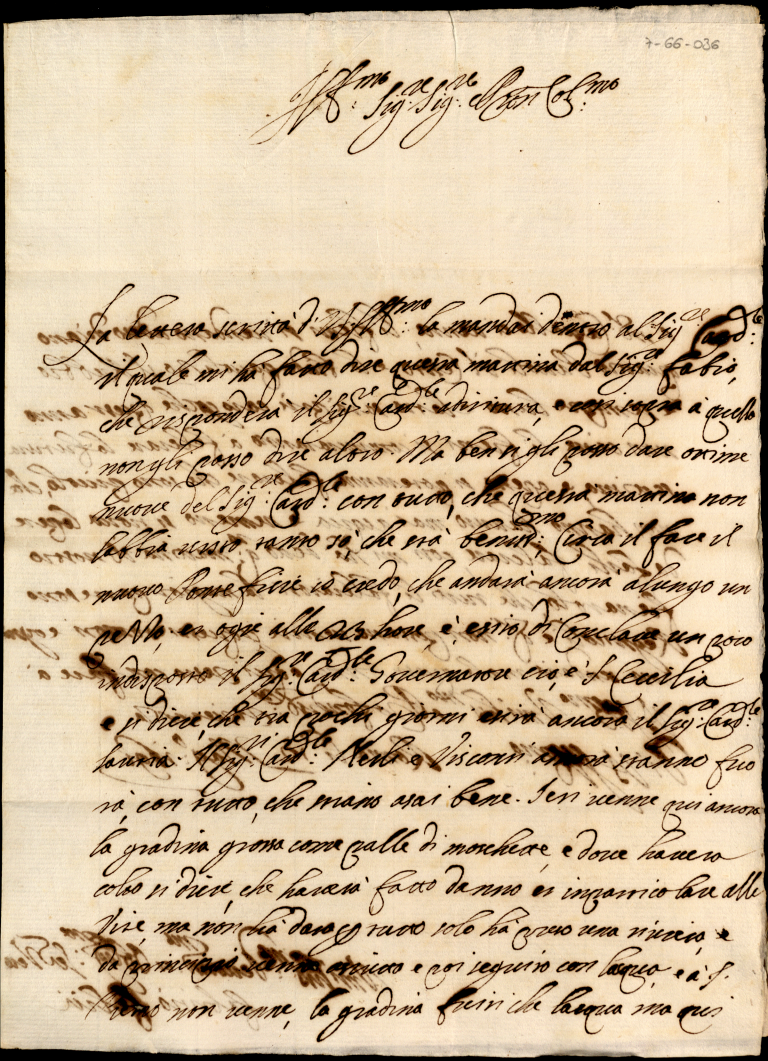 7-66-036
Ill:mo Sig:re Sig:re e P̃ron Col:mo
La lettera scritta d. V.S. Ill:mo la mandai dentro al Sig:re Card:le
il quale mi ha fatto dire questa mattina dal Sig:re Fabio,
che risponderà il Sig:re Card:le adiritura, e così sopra à questo
non gli posso dire altro. Ma ben si gli posso dare ottime
nuove del Sig:re Card:le con tutto, che questa mattina non
l'abbia visto tanto sò, che stà beniss:mo Circa il fare il
nuovo Pontefice io credo, che andarà ancora a lungo un
pezzo, et ogie alle hore, è, essito di Conclave un poco
indisposto il Sig:re Card:le Governatore cioè S. Cecilia
e si dice, che tra pochi giorni esirà ancora il Sig:re Card:le
Lauria. Il Sig:ri Card:le Nerli e Visconti ancora stanno fuo
ra, con tutto, che stiano asai bene. Ieri venne qui ancora
la gradina grossa come palle di moschette, e dove havera
colto si dice, che haverà fatto danno et in particolare alle
Vite, ma non ha dato p tutto solo ha preso una riscia, e
da principio venne asciutto e poi seguito con l'acqua, e à S.
Pietro non venne, la gradina si che l'acqua ma qui